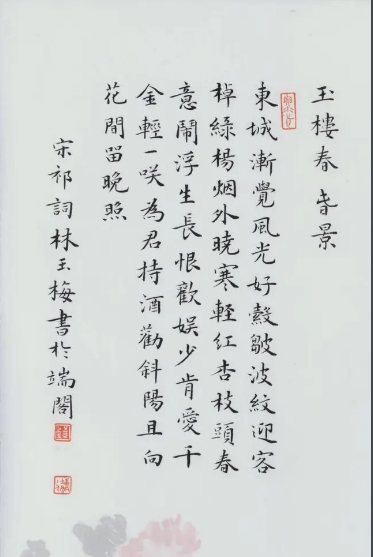 玉樓春旾景
東城漸覺風光好縠皺波紋迎客
棹綠楊烟外曉寒輕紅杏枝頭春
意鬧浮生長恨歡娛少肯愛千
金輕一咲為君持酒勸斜陽且向
花間留晚照
宋祁詞林玉梅書於端閣